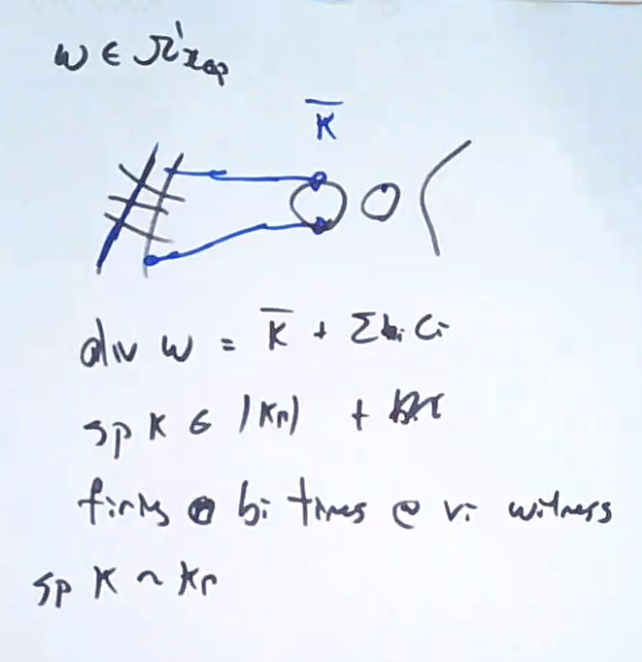 ω ∈ Ω¹
K̄
div ω = K̄ + Σ bᵢ Cᵢ
sp K ∈ |K_Γ| +
firing bᵢ times @ vᵢ witness
sp K ~ K_Γ